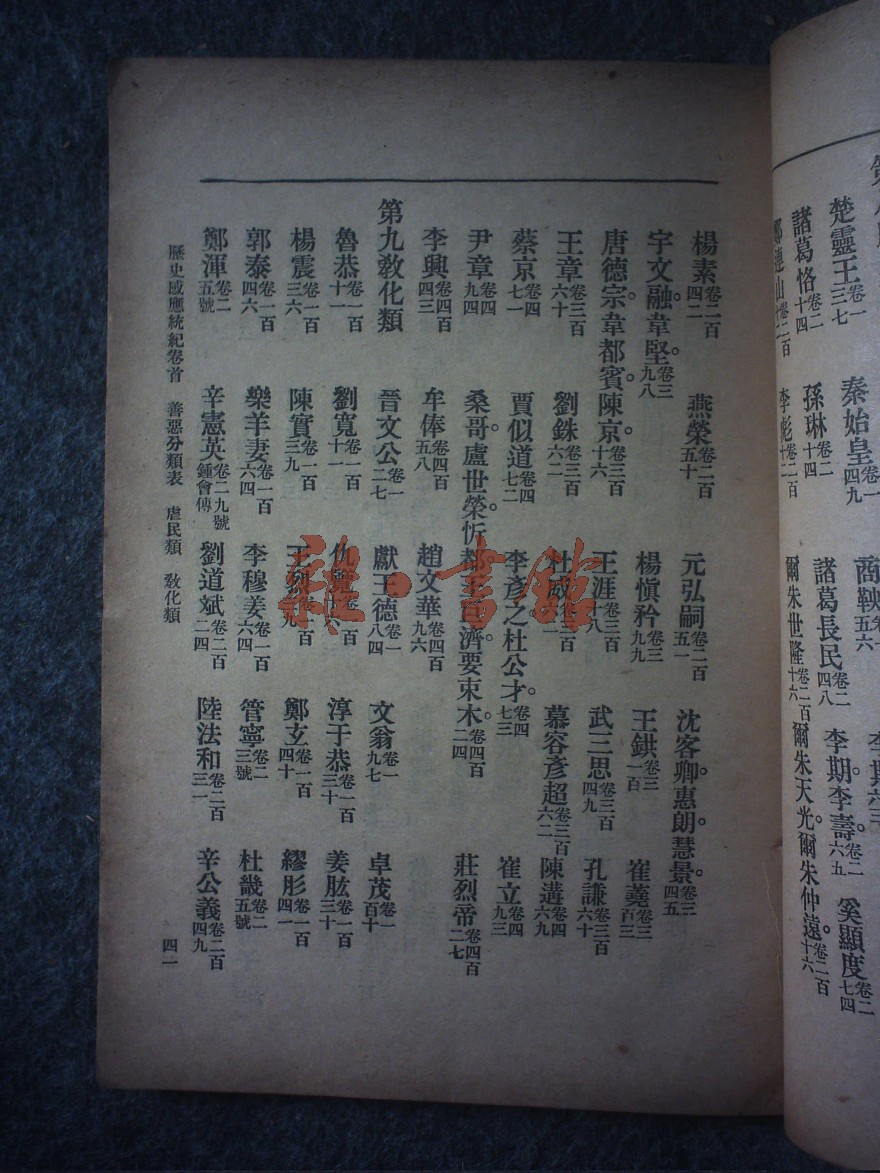 楚靈王卷一三七 秦始皇卷一四九 商鞅
諸葛恪卷二十四 孫琳卷二十四 諸葛長民卷二四八 李期。李壽。卷二六九 奚顯度卷二七四
爾朱世隆卷二百十六 爾朱天光。爾朱仲遠。卷二百十六
楊素卷二百四二 燕榮卷二百五十 元弘嗣卷二百五一 沈客卿。惠朗。慧景。卷三四五
宇文融。韋堅。卷三九八 楊愼矜卷三九九 王鉷卷三一百 崔蕘卷三百三
唐德宗。韋都賓。陳京。卷三百十六 王涯卷三百十八 武三思卷三百四九 孔謙卷三百六十
王章卷三百六十 劉銖卷三百六二 杜威 慕容彥超卷三百六二 陳遘卷四六九
蔡京卷四七一 賈似道卷四七二 李彥之杜公才。卷四七三 崔立卷四九三
尹章卷四九四 桑哥。盧世榮。忻都。王 濟。要束木。卷四百二四 莊烈帝卷四百二七
李興卷四百四三 牟俸卷四百五八 趙文華卷四百九六
第九敎化類 晉文公卷一二七 獻王德卷一八四 文翁卷一九七 卓茂卷一百十
魯恭卷一百十一 劉寬卷一百十一 仇覽 淳于恭卷一百三十 姜肱卷一百三十
楊震卷一百三六 陳實卷一百三九 王烈 鄭玄卷一百四十 繆肜卷一百四一
郭泰卷一百四六 樂羊妻卷一百六四 李穆姜卷一百六四 管寧卷二三號 杜畿卷二五號
鄭渾卷二五號 辛憲英卷二九號鍾會傳 劉道斌卷二百二四 陸法和卷二百三一 辛公義卷二百四九
歷史感應統紀卷首 善惡分類表 虐民類 敎化類 四一
雜·書館